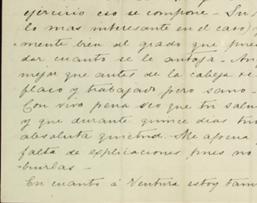 ejercicio eso se compone - Su
lo mas interesante en el caso y
mente bien al grado que pue
dar cuanto se le antoja. An
mejor que antes de la cabeza se
flaco y trabajado pero sano -
Con viva pena veo que tu salu
y que durante quince dias tu
absoluta quietud. Me apena
falta de explicaciones pues no
burlas -
En cuanto á Ventura estoy tam